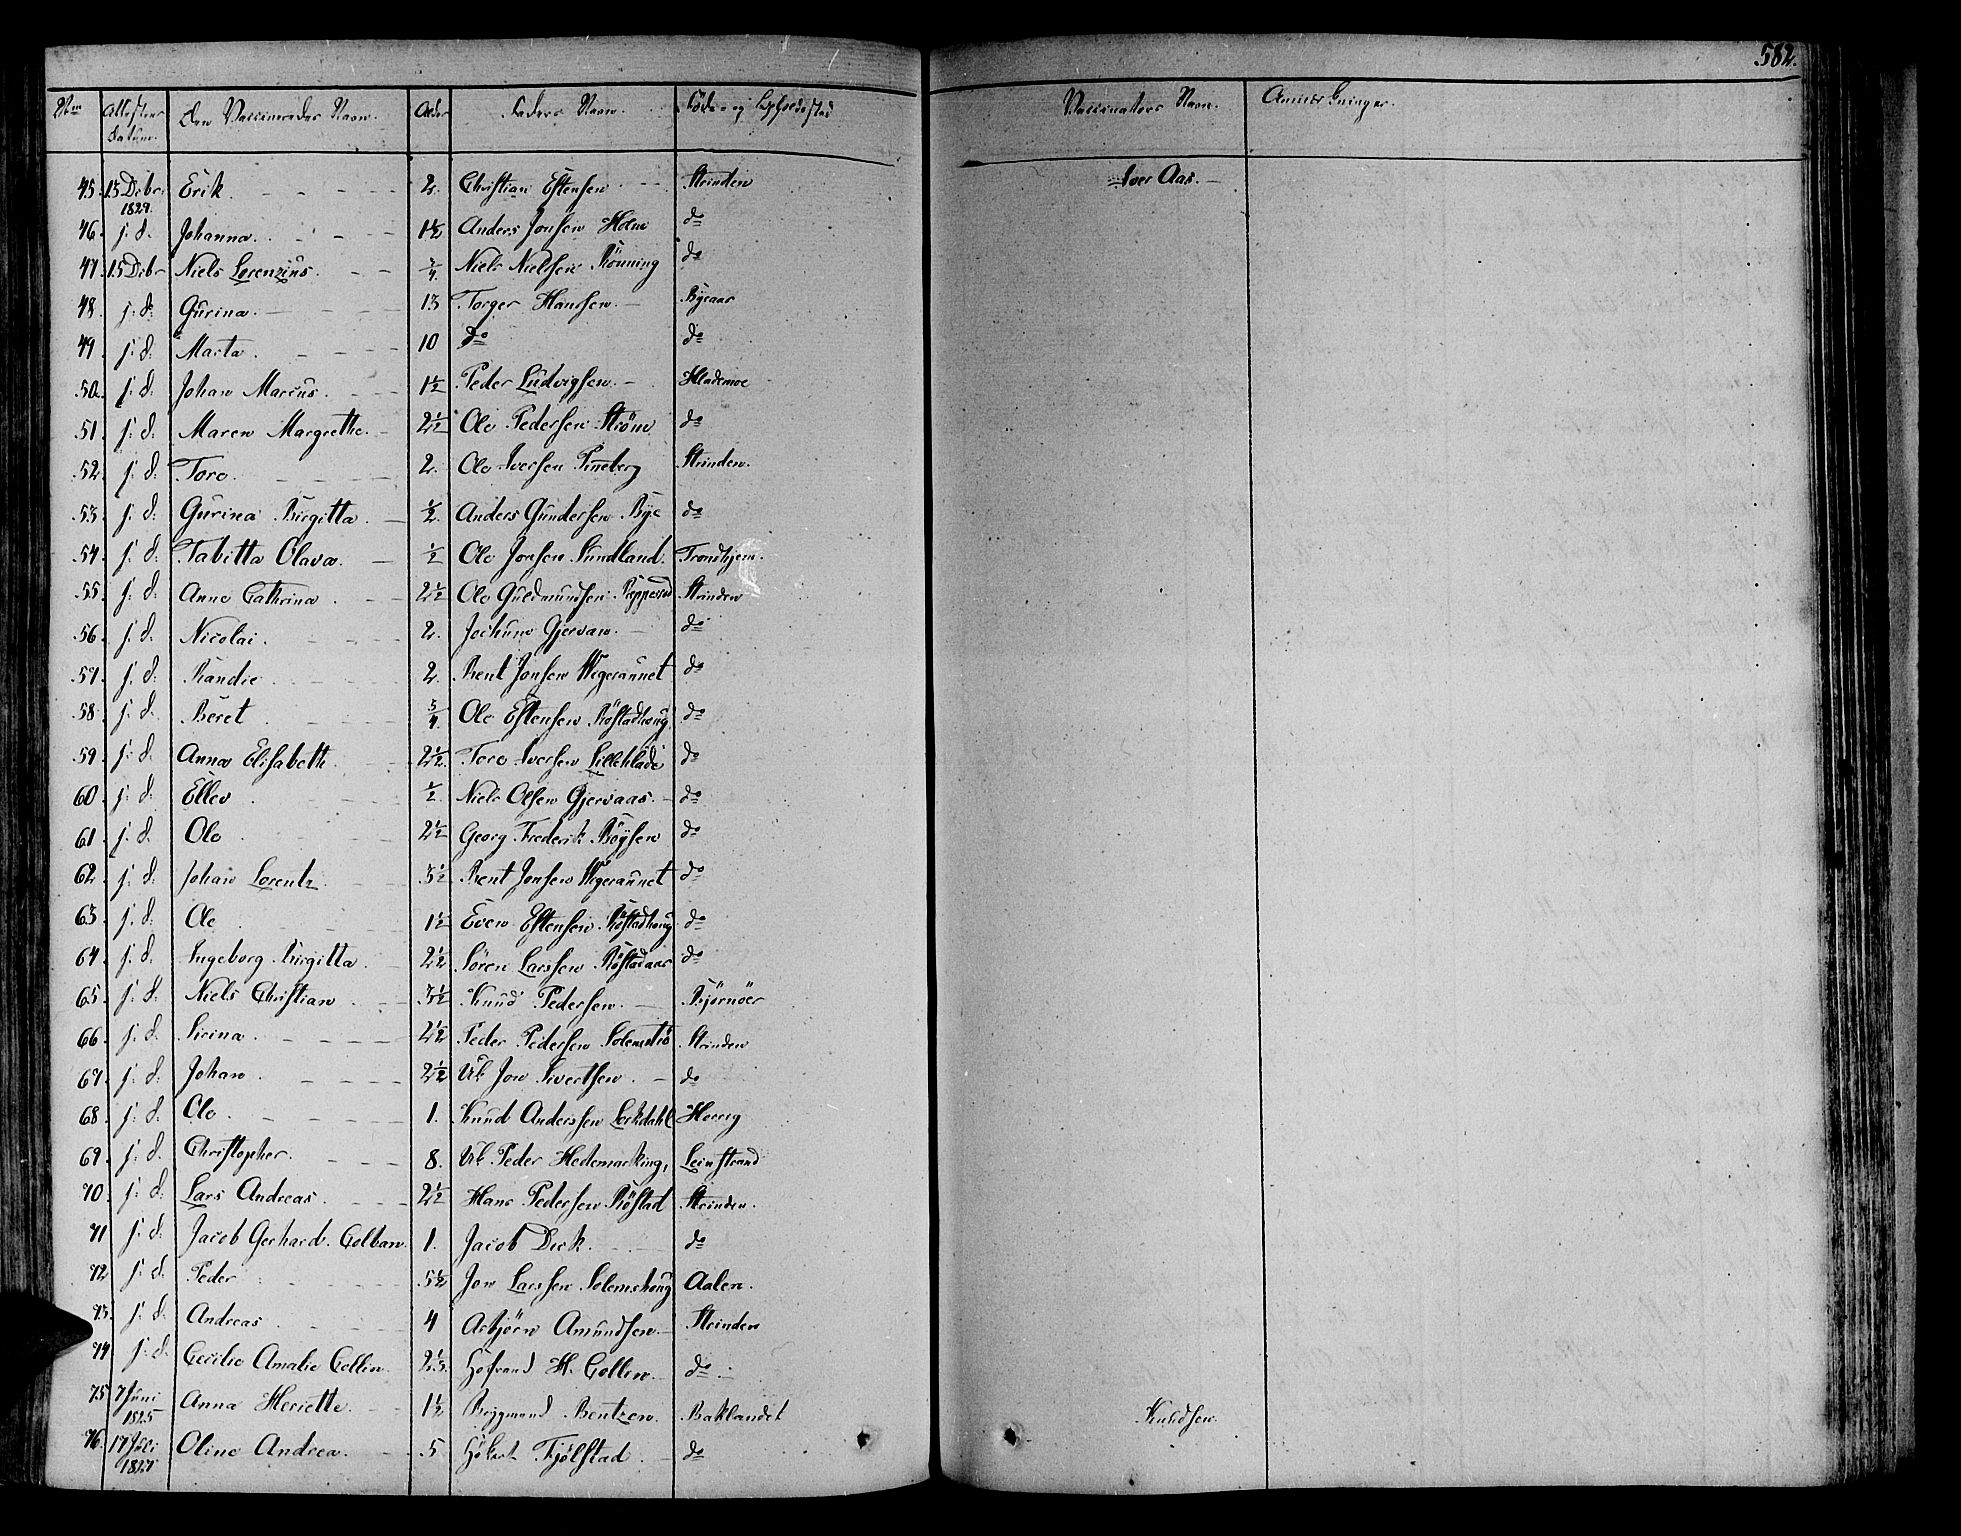 582.
Attestens Datum. Den Vaccineredes Navn. Alder Faders Navn. Føde- og Opholdssted Vaccinateurs Navn. Anmærkninger.
45. 15 Debr. 1829. Erik. 2. Christian Estensen Strinden Iver Aas.
46. j. d. Johanna. 1 1/2 Anders Jonsen Holm do
47. 15 Debr Niels Lorenzius. 3/4. Niels Nielsen Rönning do
48. j. d. Gurina. 13 Torger Hansen. Byeaas
49. j. d. Marta. 10 do do
50. j. d. Johan Marcus. 1 1/2 Peder Ludvigsen. Hlademoe
51. j. d. Maren Margrethe. 2 1/2 Ole Pedersen Ström do
52. j. d. Tore. 2. Ole Iversen Pineberg Strinden.
53. j. d. Gurina Birgitta. 1/2. Anders Gundersen Bye do
54. j. d. Tabitta Olava. 1/2 Ole Jonsen Sundland. Trondhjem.
55. j. d. Anne Cathrina 2 1/2 Ole Guldmundsen Strinden
56. j. d. Nicolai. 2. Jochum Gjervan. do
57. j. d. Randie 2. Bent Jonsen do
58. j. d. Beret 5/4 Ole Estensen Röstadhaug do
59. j. d. Anna Elisabeth 2 1/2. Tore Iversen Lillehlade do
60. j. d. Ellev 1/2. Niels Olsen Gjervaas. do
61. j. d. Ole 2 1/2 Georg Frederik Böysen do
62. j. d. Johan Lorentz 3 1/2 Bent Jonsen do
63. j. d. Ole 1 1/2 Even Estensen Röstadhaug do
64. j. d. Ingeborg Birgitta. 2 1/2 Sören Larssen Röstadaas do
65. j. d. Niels Christian 3 1/2 Knud Pedersen. Bjørnöer
66. j. d. Sirina. 2 1/2 Peder Pedersen Strinden
67. j. d. Johan. 2 1/2 Uk Jon Sivertsen. do
68. j. d. Ole. 1. Knud Anderssen Lockdahl Horrig
69. j. d. Christopher. 8. Uk. Peder Hedemarking, Leinstrand
70. j. d. Lars Andreas. 2 1/2 Hans Pedersen Röstad Strinden.
71 j. d. Jacob Gerhard Colban. 1. Jacob Dick. do
72 j. d. Peder 5 1/2 Jon Larssen Solemshaug Aalen.
73. j. d. Andreas 4 Asbjörn Amundsen. Strinden
74 j. d. Cecilie Amalie Collin. H. Collin. do
75 7 Juni 1825 Anna Heriette. 1 1/2 Bentzen. Baklandet Knudsen.
76. 17 Juli Oline Andrea. 5 Fjölstad do